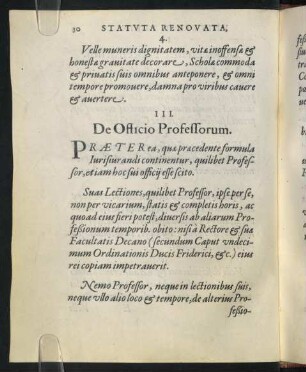 30 STATVTA RENOVATA,
4.
Velle muneris dignitatem, vitæ inoffensæ &
honestæ grauitate decorare, Scholæ commoda
& priuatis suis omnibus anteponere, & omni
tempore promouere, damna pro viribus cauere
& auertere.
III.
De Officio Professorum.
PRÆTER ea, quæ præcedente formula
Iurisiurandi continentur, quilibet Profes-
sor, etiam hoc sui officij esse scito.
Suas Lectiones, quilibet Professor, ipse per se,
non per vicarium, statis & completis horis, ac
quo ad eius fieri potest, diuersis ab aliarum Pro-
fessionum temporib. obito: nisi à Rectore & suæ
Facultatis Decano (secundum Caput vndeci-
mum Ordinationis Ducis Friderici, &c.) eius
rei copiam impetrauerit.
Nemo Professor, neque in lectionibus suis,
neque vllo alio loco & tempore, de alterius Pro-
fessio-